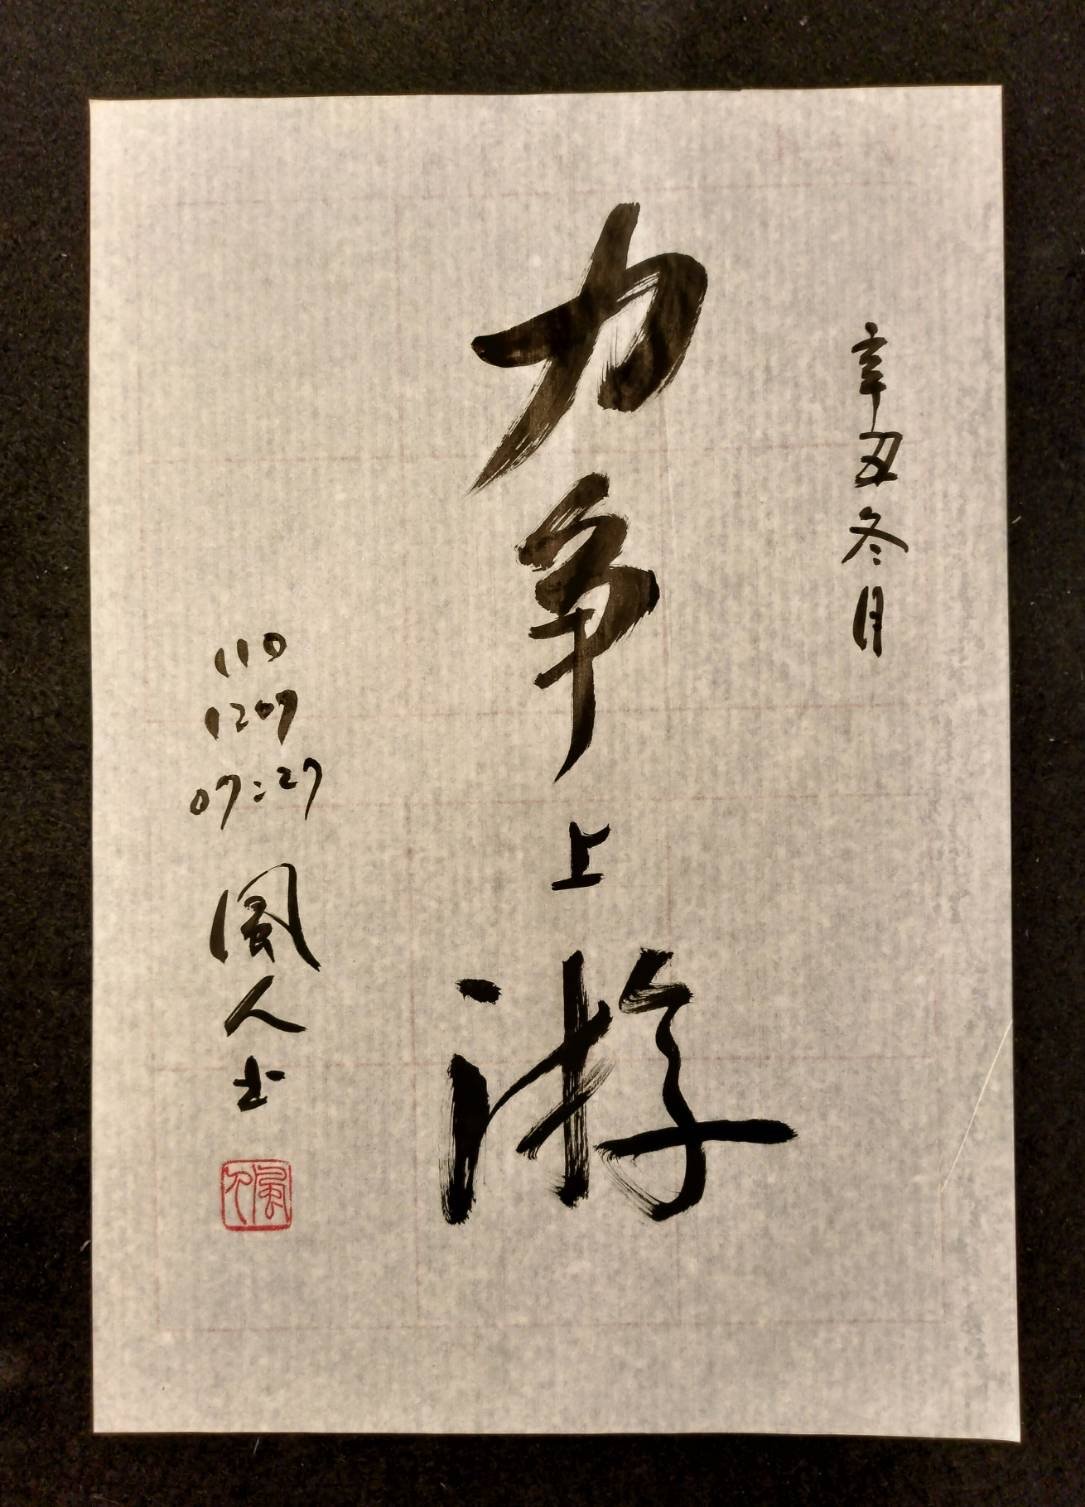 辛丑冬月
力争上游
110
1207
07:27
風人士
風人